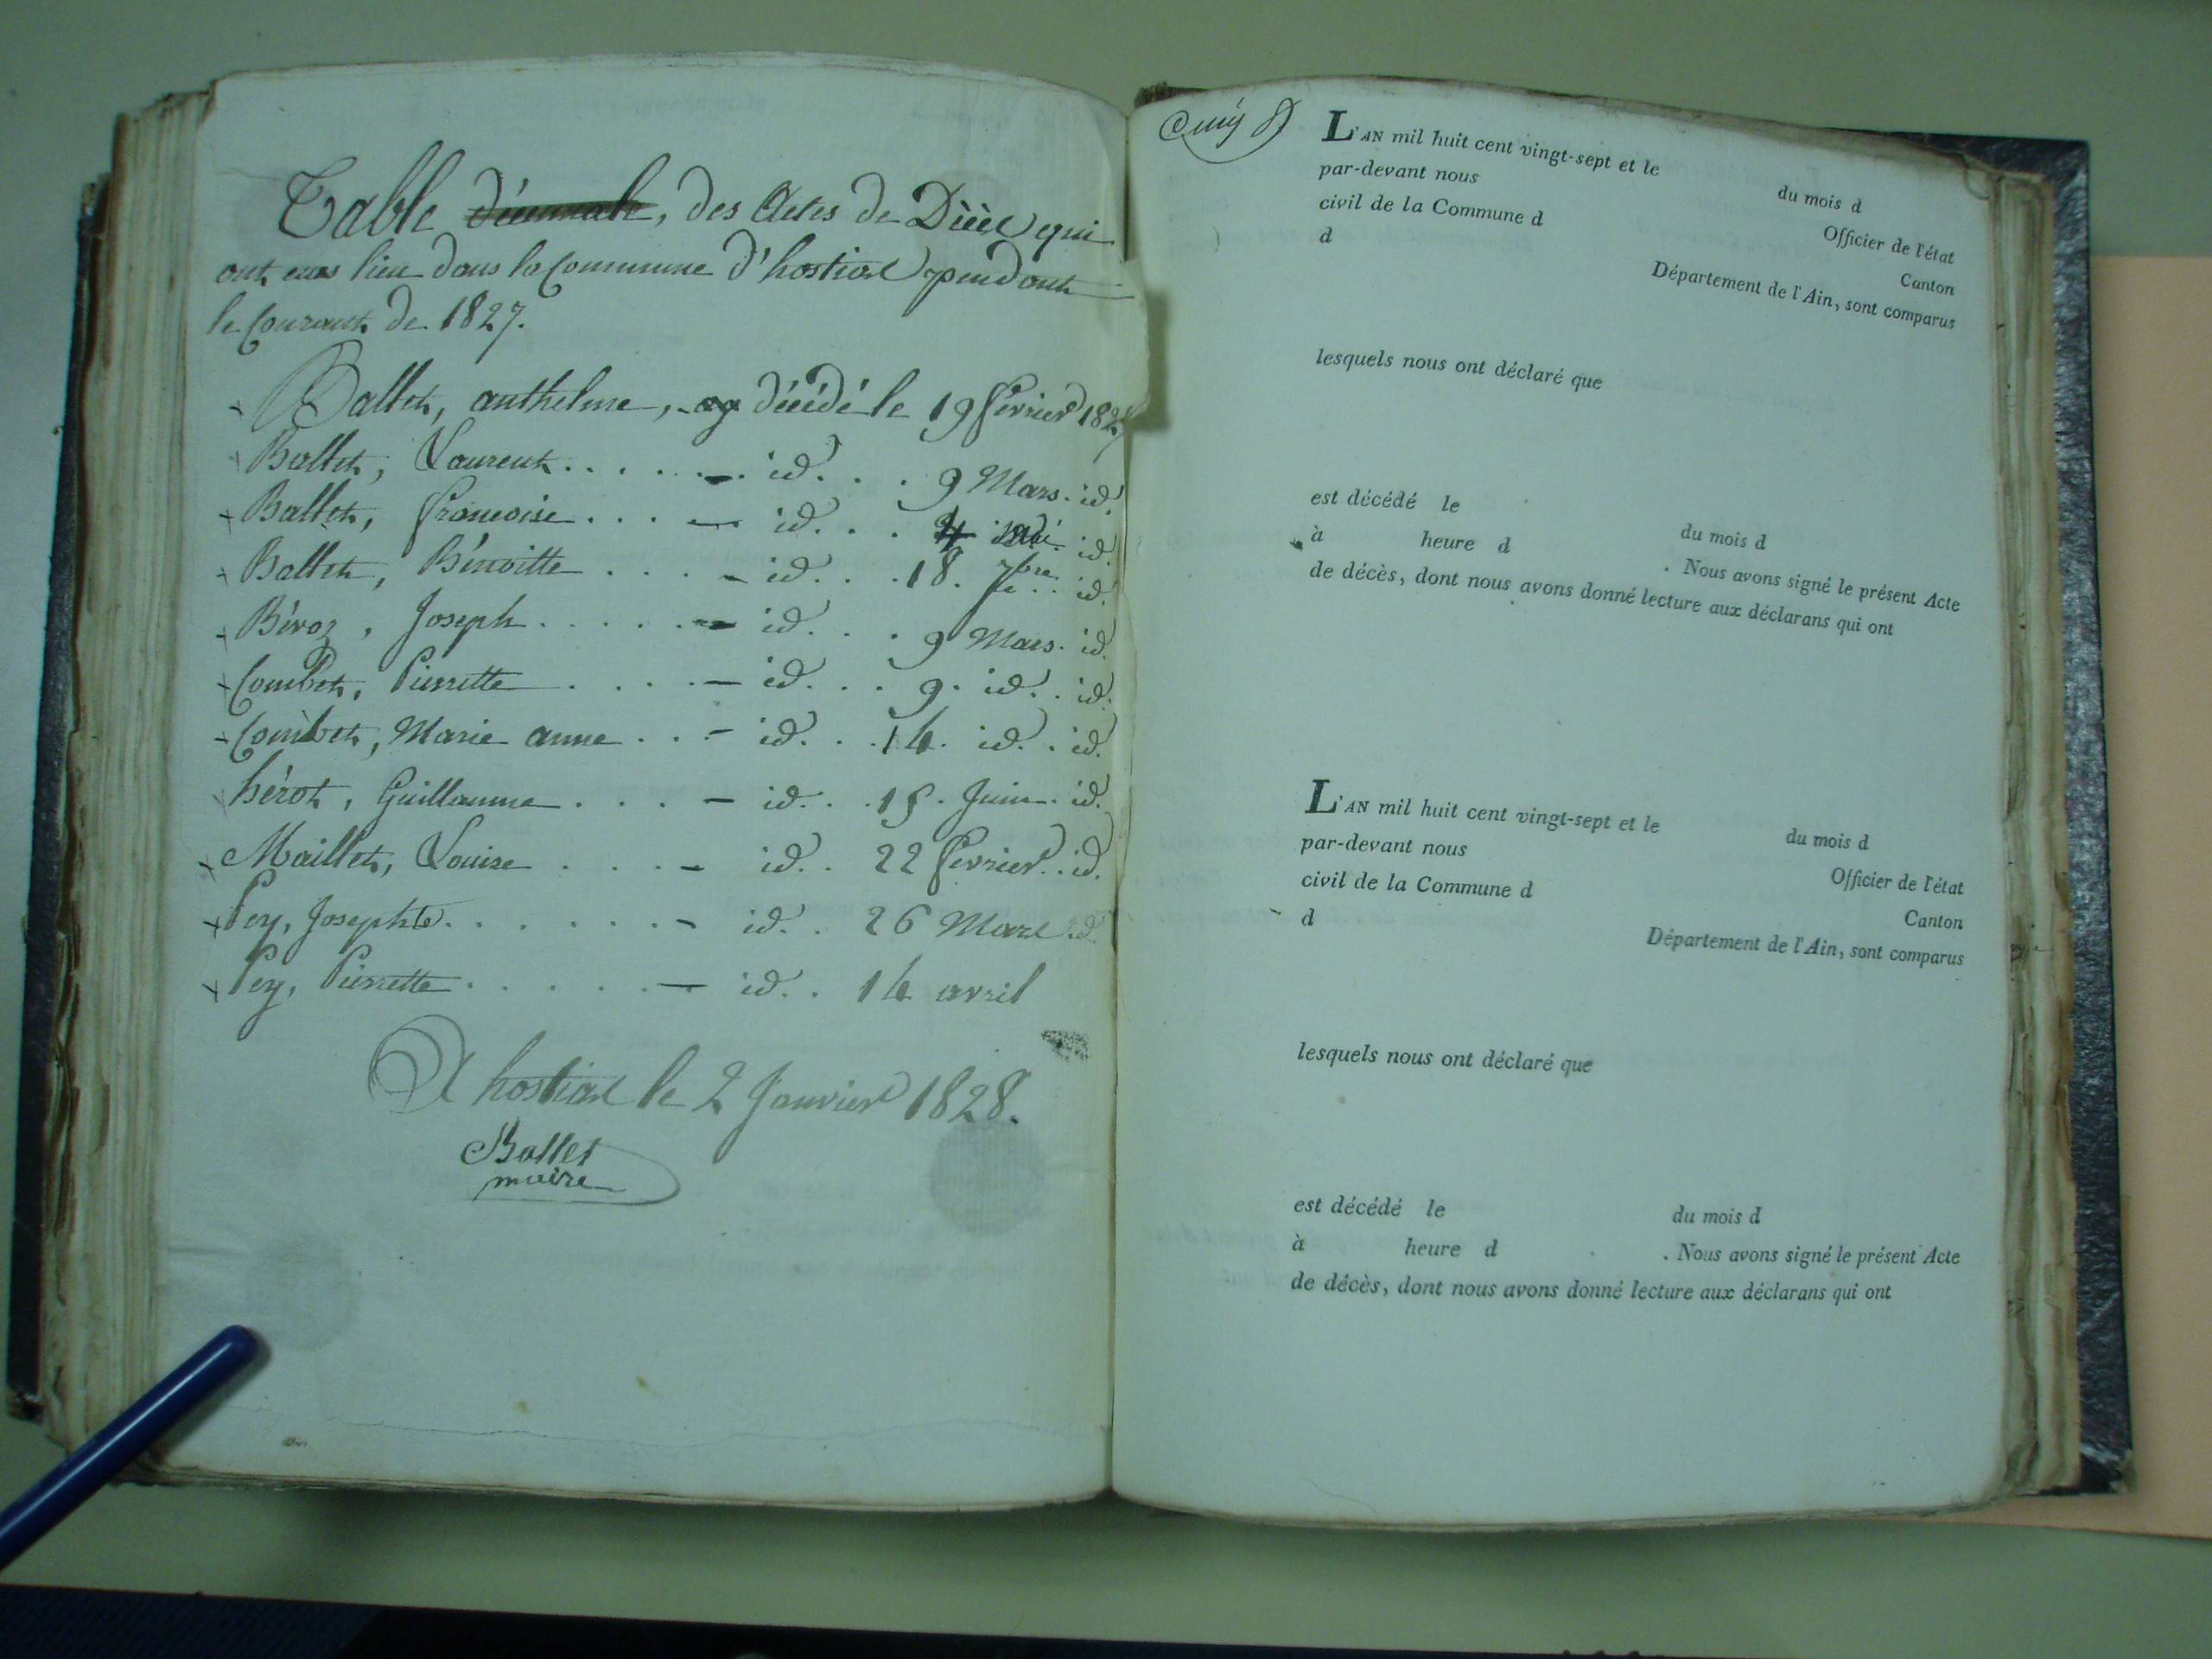 Table décennale, des Actes de Décès qui
ont eus lieu dans la Commune d'hostiaz pendant
le Courant de 1827.
Ballet, anthelme, décédé le 19 février 1827
Ballet, Laurent . . . . . — id. . . 9 Mars. id.
Ballet, françoise . . . — id. . . 4 Mai. id.
Ballet, Bénoitte . . . . — id. . . 18. 7bre. id.
Béroz, Joseph . . . . . — id. . . 9 Mars. id.
Combet, Pierrette . . . . — id. . . 9. id. . id.
Combet, Marie anne . . . — id. . . 14. id. . id.
hérot, Guillaume . . . — id. . . 15. Juin. id.
Maillet, Louise . . . — id. . 22 février. . id.
Pey, Josephte . . . . . . — id. . 26 Mars id.
Pey, Pierrette . . . . . — id. . 14 avril
A hostiaz le 2 Janvier 1828.
Ballet
maire
L'AN mil huit cent vingt-sept et le du mois d
par-devant nous Officier de l'état
civil de la Commune d Canton
d Département de l'Ain, sont comparus
lesquels nous ont déclaré que
est décédé le du mois d
à heure d . Nous avons signé le présent Acte
de décès, dont nous avons donné lecture aux déclarans qui ont
L'AN mil huit cent vingt-sept et le du mois d
par-devant nous Officier de l'état
civil de la Commune d Canton
d Département de l'Ain, sont comparus
lesquels nous ont déclaré que
est décédé le du mois d
à heure d . Nous avons signé le présent Acte
de décès, dont nous avons donné lecture aux déclarans qui ont